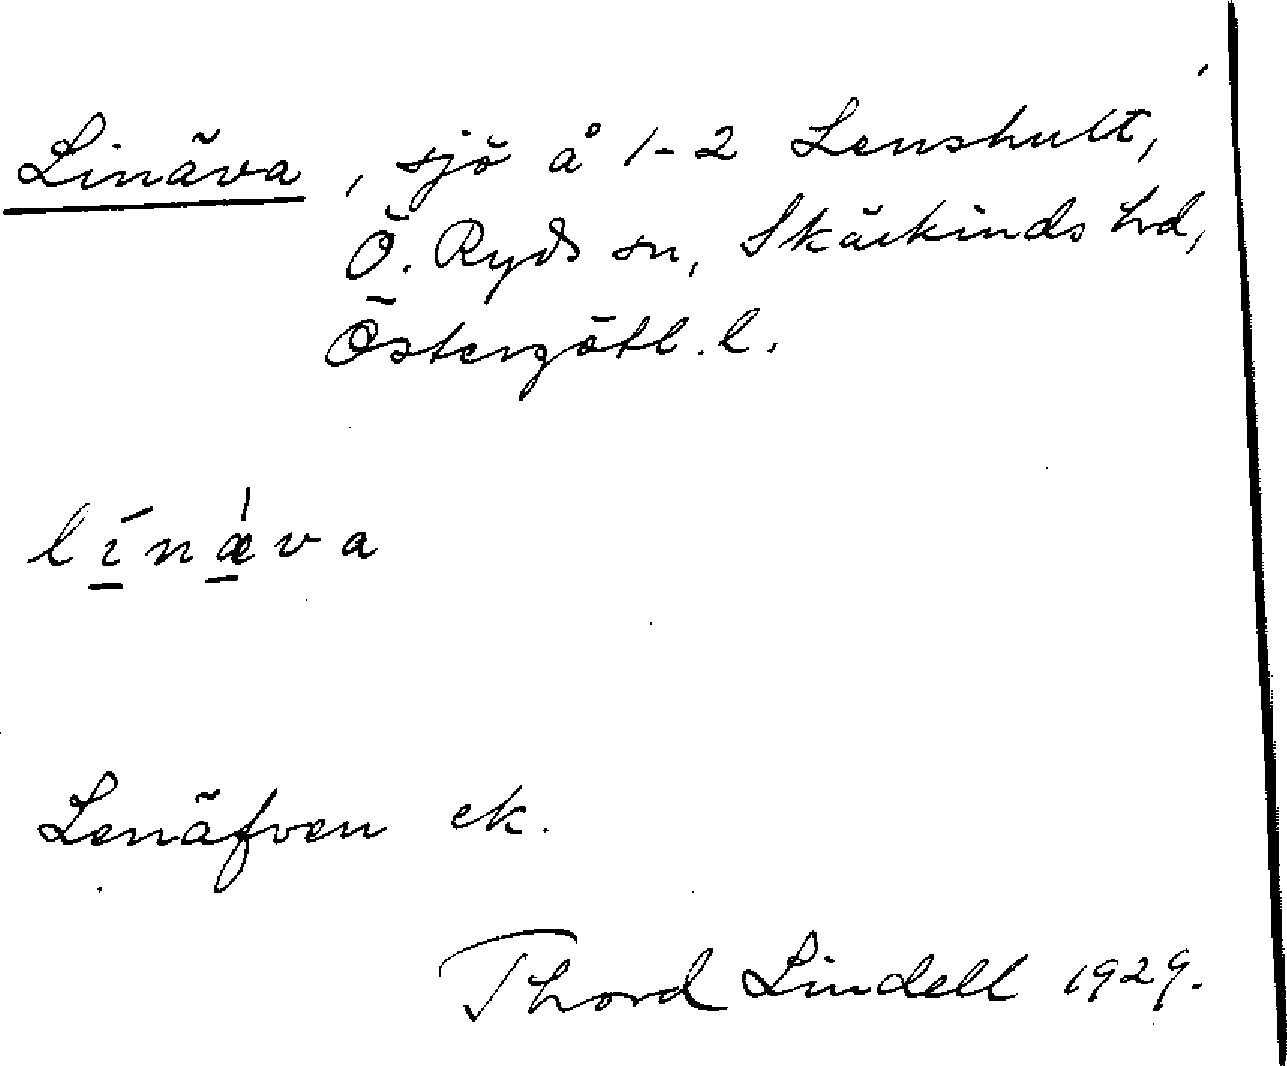 Linäva, sjö å 1-2 Lenshult,
Ö. Ryds sn, Skärkinds hd,
Östergötl. l.
lī́næ̀va
Lenäfven ek.
Thord Lindell 1929.